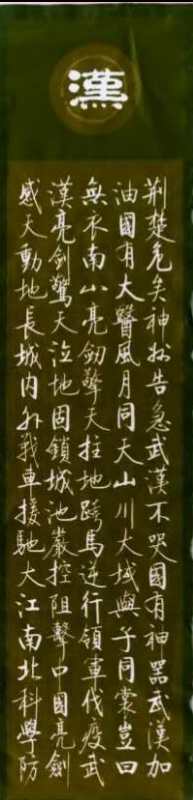 漢
荆楚危矣神州告急武漢不哭國有神器武漢加
油國有大醫風月同天山川大域與子同裳豈曰
無衣南山亮劒擎天拄地跨馬逆行領軍伐疫武
漢亮劍驚天泣地固鎖城池嚴控阻擊中國亮劍
感天動地長城内外戰車接馳大江南北科學防